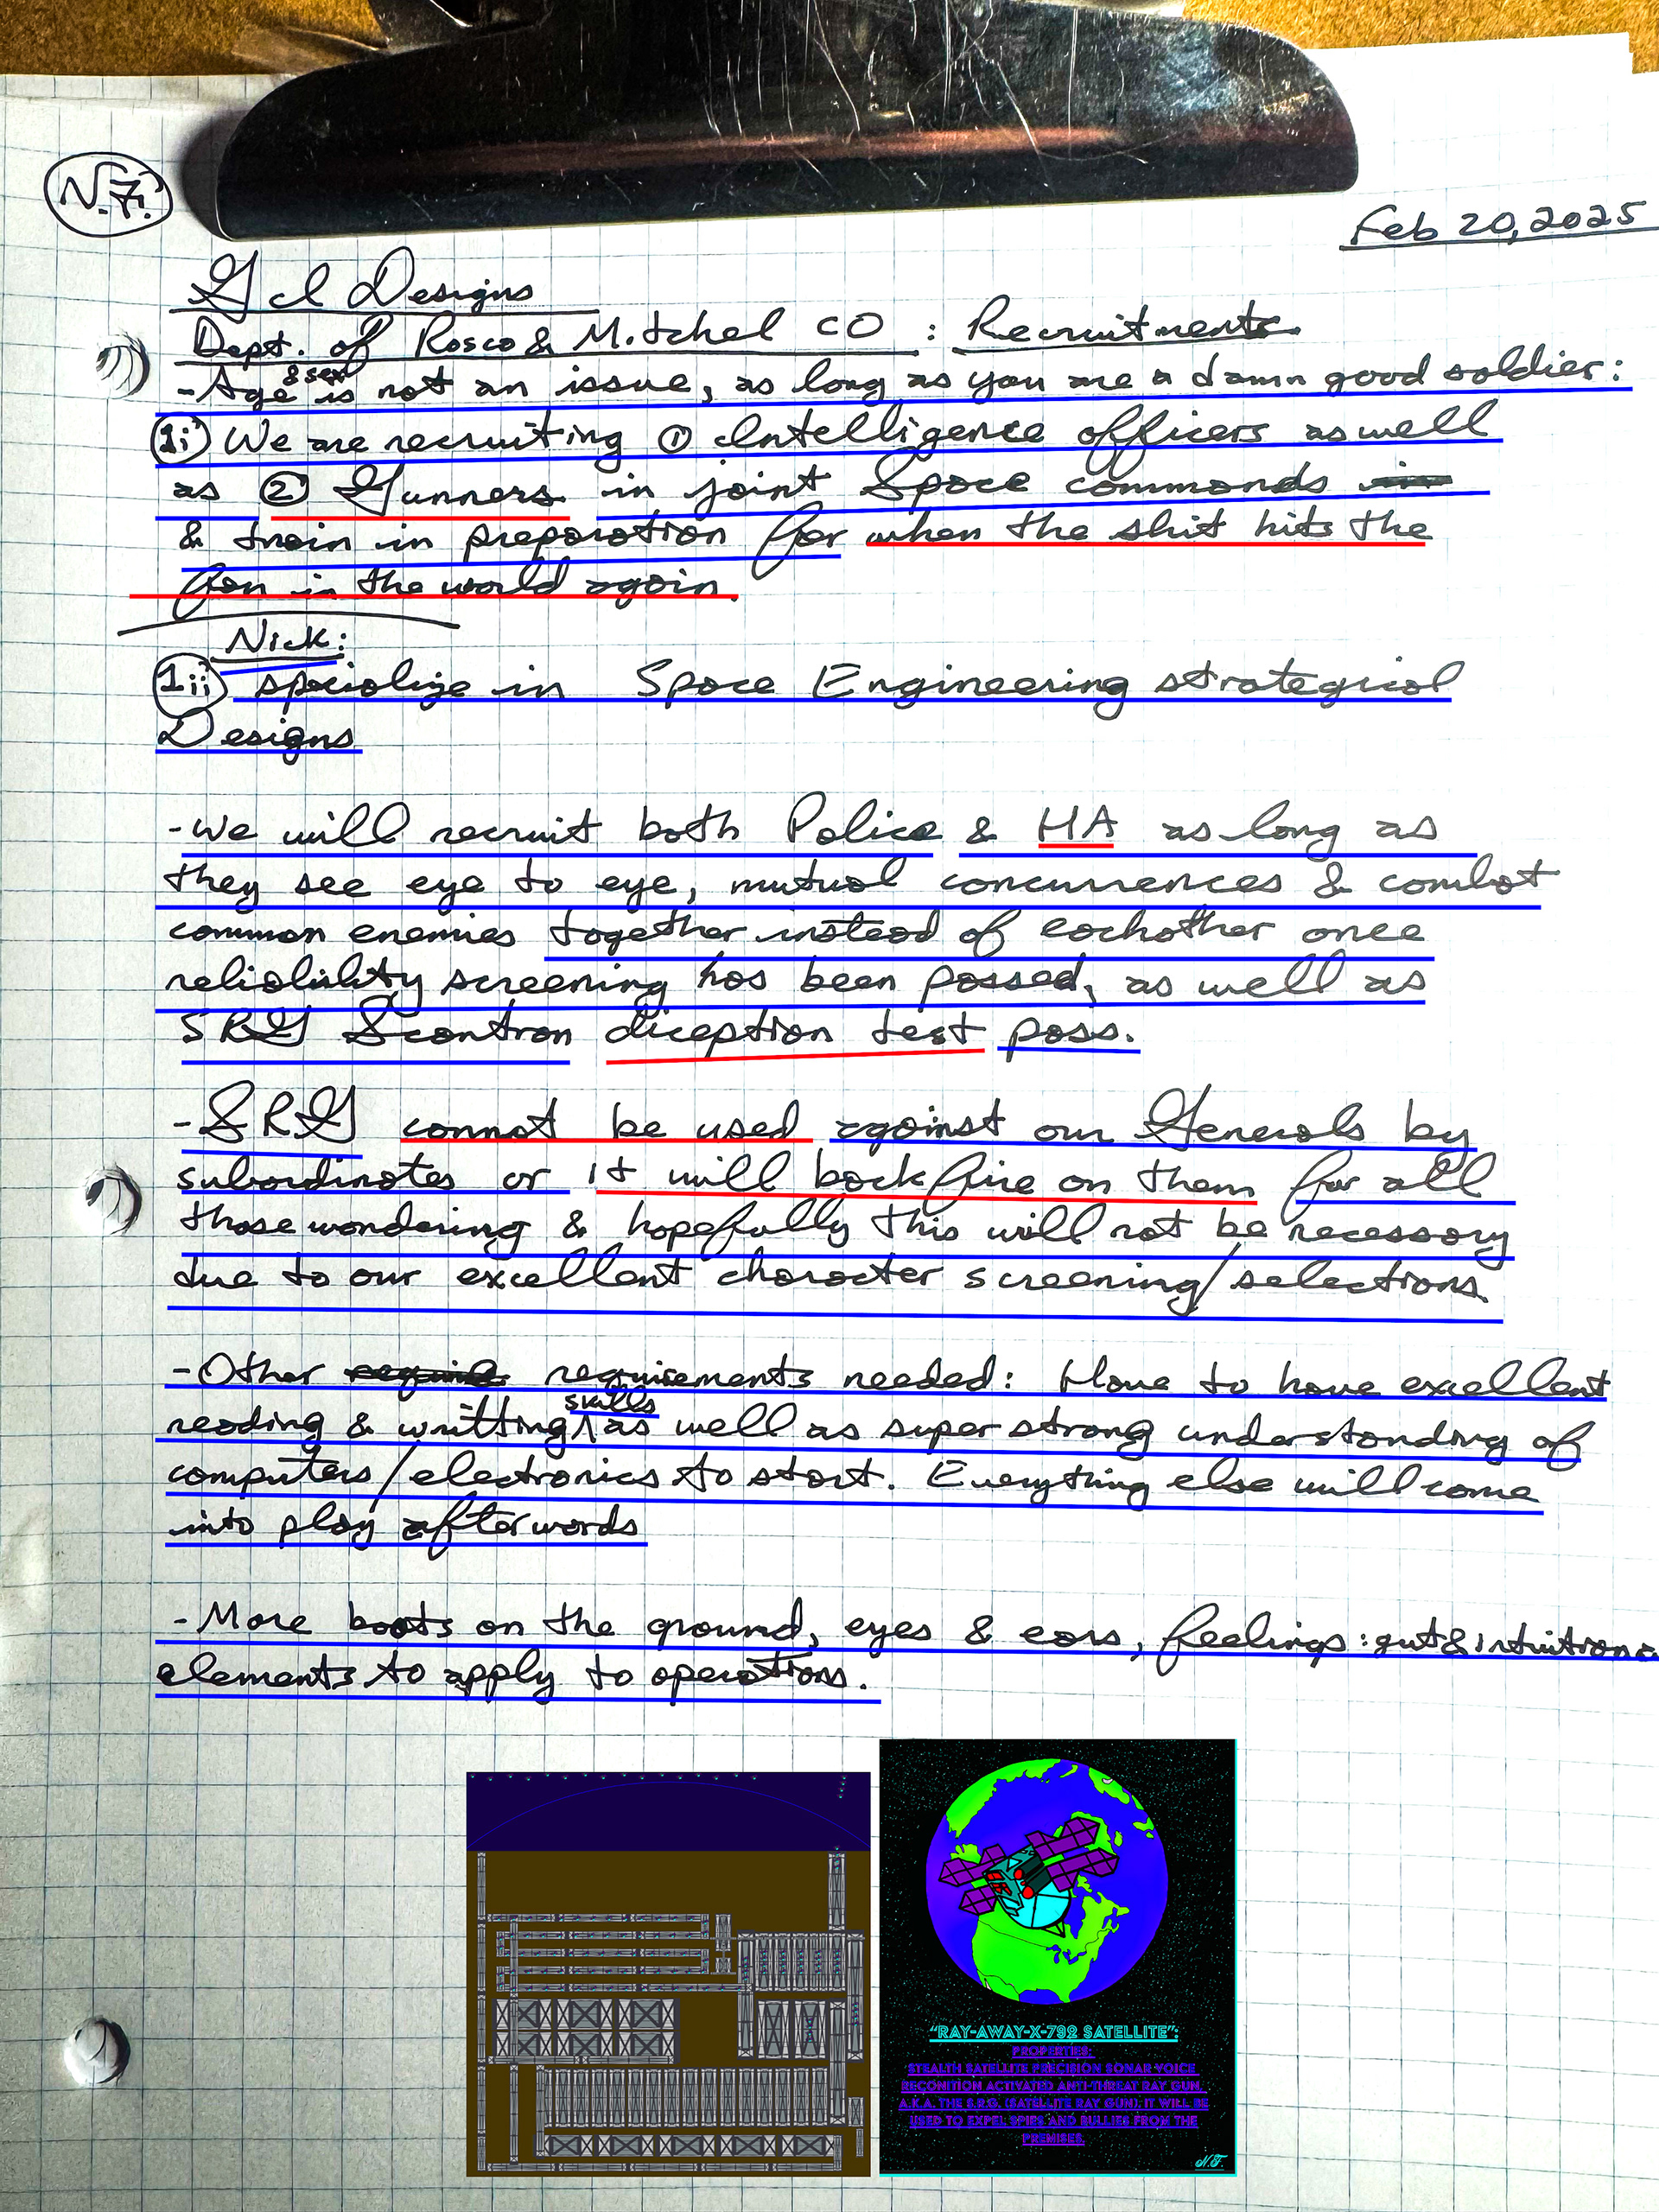 N.F.
Feb 20, 2025
Gcl Designs
Dept. of Rosco & Mitchel CO : Recruitments
& sex
- Age is not an issue, as long as you are a damn good soldier:
1i) We are recruiting ① Intelligence officers as well
as ② Gunners in joint Space commands
& train in preparation for when the shit hits the
fan in the world again.
Nick:
1ii) specialize in Space Engineering strategical
Designs
- We will recruit both Police & HA as long as
they see eye to eye, mutual concurrences & combat
common enemies together instead of eachother once
reliability screening has been passed, as well as
SRG Scantron diception test pass.
- SRG cannot be used against our Generals by
subordinates or it will backfire on them for all
those wondering & hopefully this will not be necessary
due to our excellent character screening/selections.
- Other requirements needed: Have to have excellent
skills
reading & writting as well as super strong understanding of
computers/electronics to start. Everything else will come
into play afterwords
- More boots on the ground, eyes & ears, feelings: gut & intuitions
elements to apply to operations.
"RAY-AWAY-X-792 SATELLITE":
PROPERTIES:
STEALTH SATELLITE PRECISION SONAR VOICE
RECONITION ACTIVATED ANTI-THREAT RAY GUN,
A.K.A. THE S.R.G. (SATELLITE RAY GUN). IT WILL BE
USED TO EXPEL SPIES AND BULLIES FROM THE
PREMISES.
N.F.